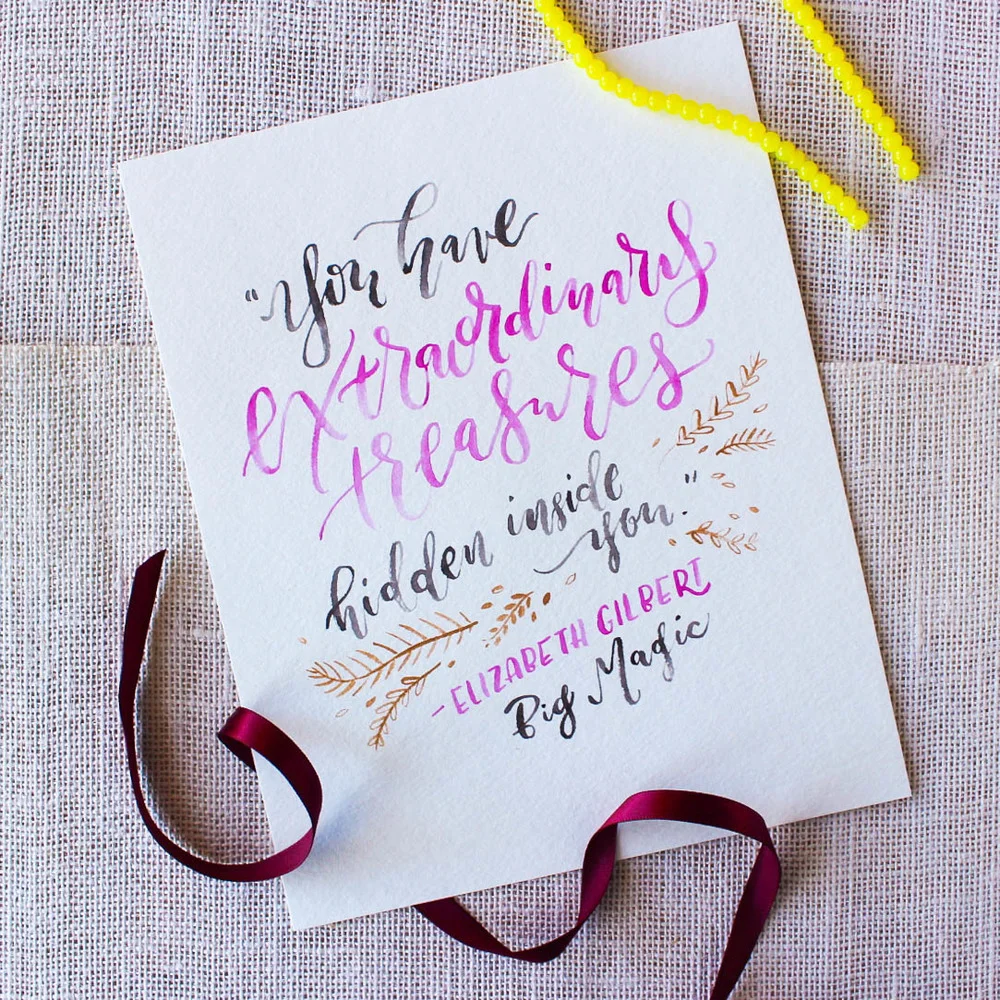 "you have
extraordinary
treasures
hidden inside
you."
-ELIZABETH GILBERT
Big Magic